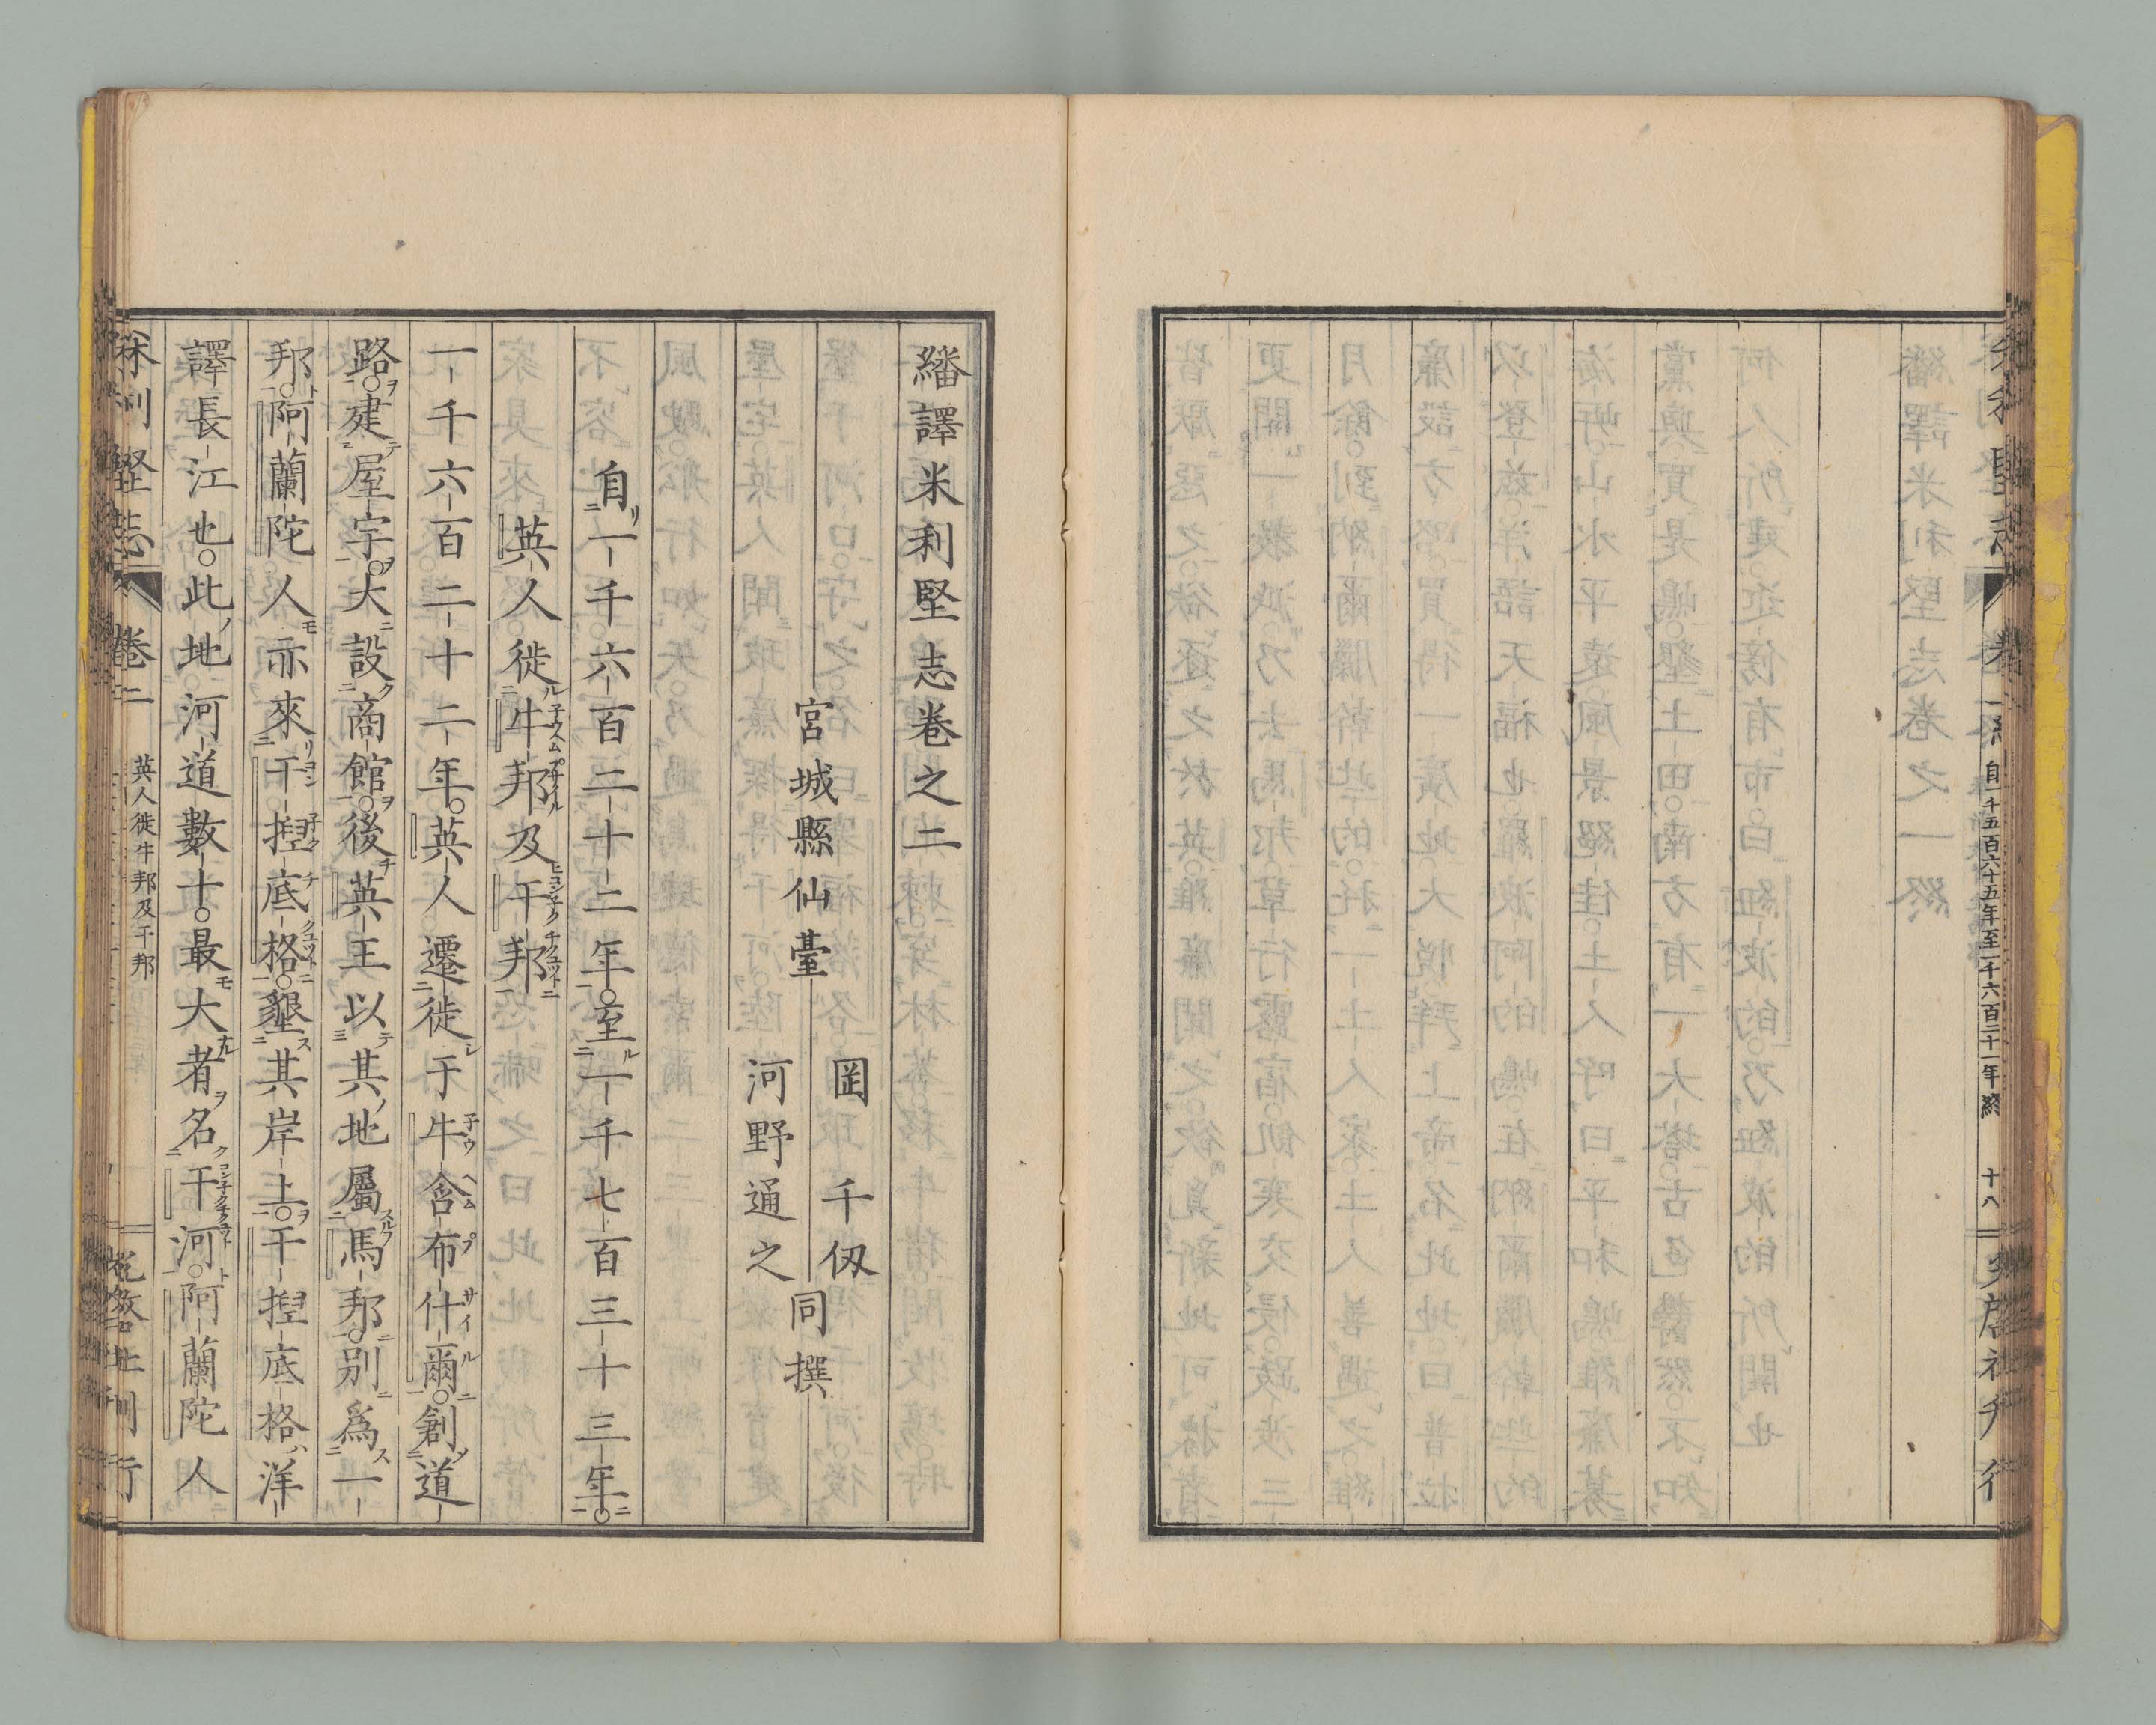 米利堅志 卷一終 自一千五百六十五年至一千六百二十一年終 十八 光啓社刊行
繙譯米利堅志卷之二
宮城縣仙臺 岡千仭
河野通之 同撰
自一千六百二十二年。至一千七百三十三年。
英人徙牛邦及干邦
一千六百二十二年。英人遷徙于牛含布什爾。創道
路。建屋宇。大設商館。後英王以其地屬馬邦。別爲一
邦。阿蘭陀人亦來干捏底格。墾其岸上。干捏底格洋
譯長江也。此地河道數十。最大者名干河。阿蘭陀人
米利堅志 卷二 英人徙牛邦及干邦 光啓社刊行